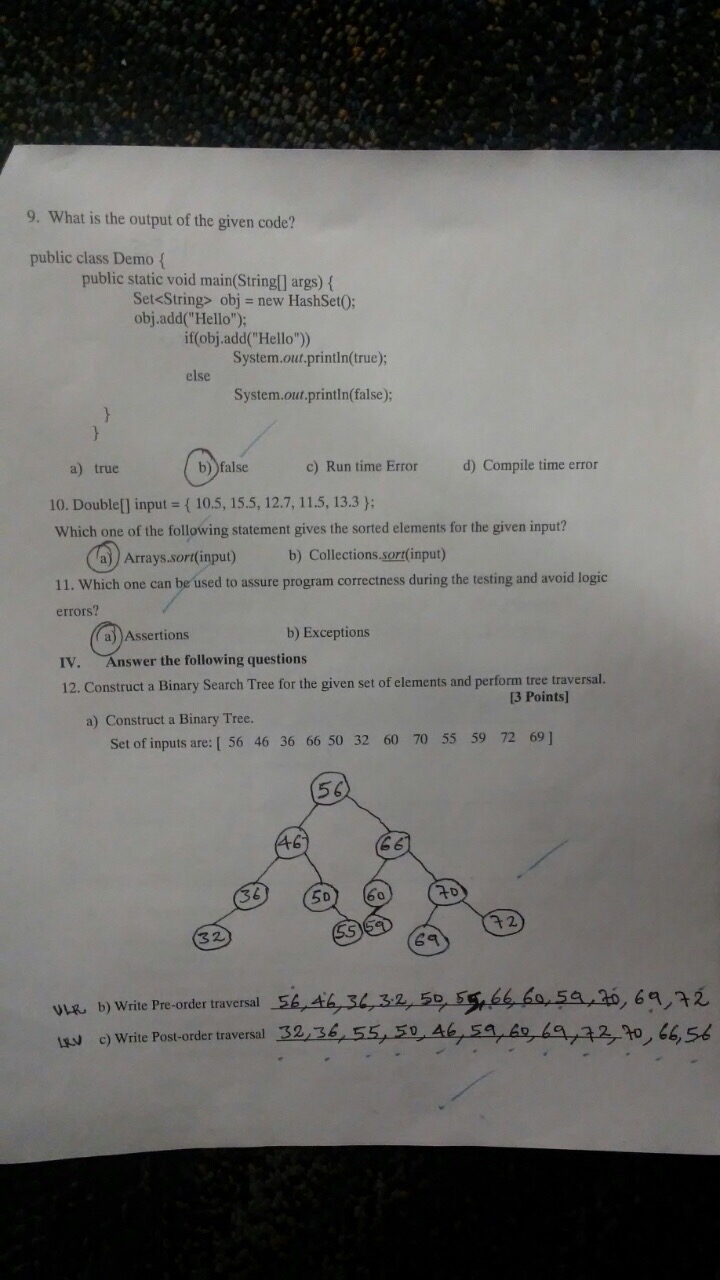 9. What is the output of the given code?
public class Demo {
public static void main(String[] args) {
Set<String> obj = new HashSet();
obj.add("Hello");
if(obj.add("Hello"))
System.out.println(true);
else
System.out.println(false);
}
}
a) true b) false c) Run time Error d) Compile time error
10. Double[] input = { 10.5, 15.5, 12.7, 11.5, 13.3 };
Which one of the following statement gives the sorted elements for the given input?
a) Arrays.sort(input) b) Collections.sort(input)
11. Which one can be used to assure program correctness during the testing and avoid logic
errors?
a) Assertions b) Exceptions
IV. Answer the following questions
12. Construct a Binary Search Tree for the given set of elements and perform tree traversal.
[3 Points]
a) Construct a Binary Tree.
Set of inputs are: [ 56 46 36 66 50 32 60 70 55 59 72 69 ]
56
46 66
36 50 60 70
32 55 59 69 72
VLR b) Write Pre-order traversal 56, 46, 36, 32, 50, 55, 66, 60, 59, 70, 69, 72
LRV c) Write Post-order traversal 32, 36, 55, 50, 46, 59, 60, 69, 72, 70, 66, 56